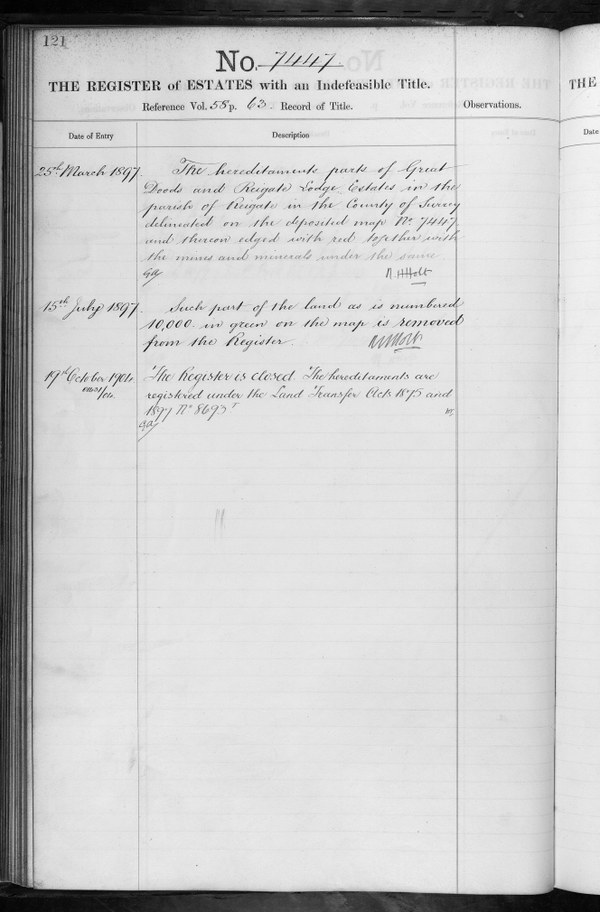 121
No. 7447.
THE REGISTER of ESTATES with an Indefeasible Title.
Reference Vol. 58 p. 63. Record of Title.
Observations.
Date of Entry
Description
25th March 1897.
The hereditaments parts of Great
Doods and Reigate Lodge Estates in the
parish of Reigate in the County of Surrey
delineated on the deposited map No. 7447
and thereon edged with red together with
the mines and minerals under the same
15th July 1897.
Such part of the land as is numbered
10,000 in green on the map is removed
from the Register.
19th October 1904.
The Register is closed. The hereditaments are
registered under the Land Transfer Acts 1875 and
1897 No 8693
THE
Date